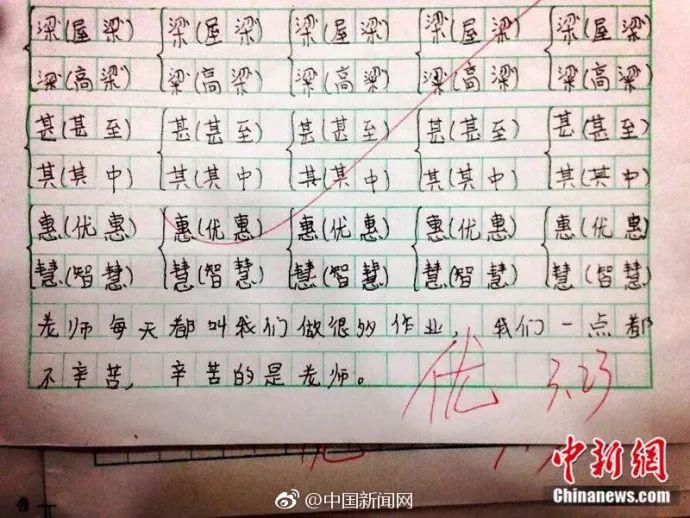 梁(屋梁) 梁(屋梁) 梁(屋梁) 梁(屋梁) 梁(屋梁)
粱(高粱) 粱(高粱) 粱(高粱) 粱(高粱) 粱(高粱)
甚(甚至) 甚(甚至) 甚(甚至) 甚(甚至) 甚(甚至)
其(其中) 其(其中) 其(其中) 其(其中) 其(其中)
惠(优惠) 惠(优惠) 惠(优惠) 惠(优惠) 惠(优惠)
慧(智慧) 慧(智慧) 慧(智慧) 慧(智慧) 慧(智慧)
老师每天都叫我们做很多作业，我们一点都
不辛苦，辛苦的是老师。
优 3.23
中新网
Chinanews.com
@中国新闻网